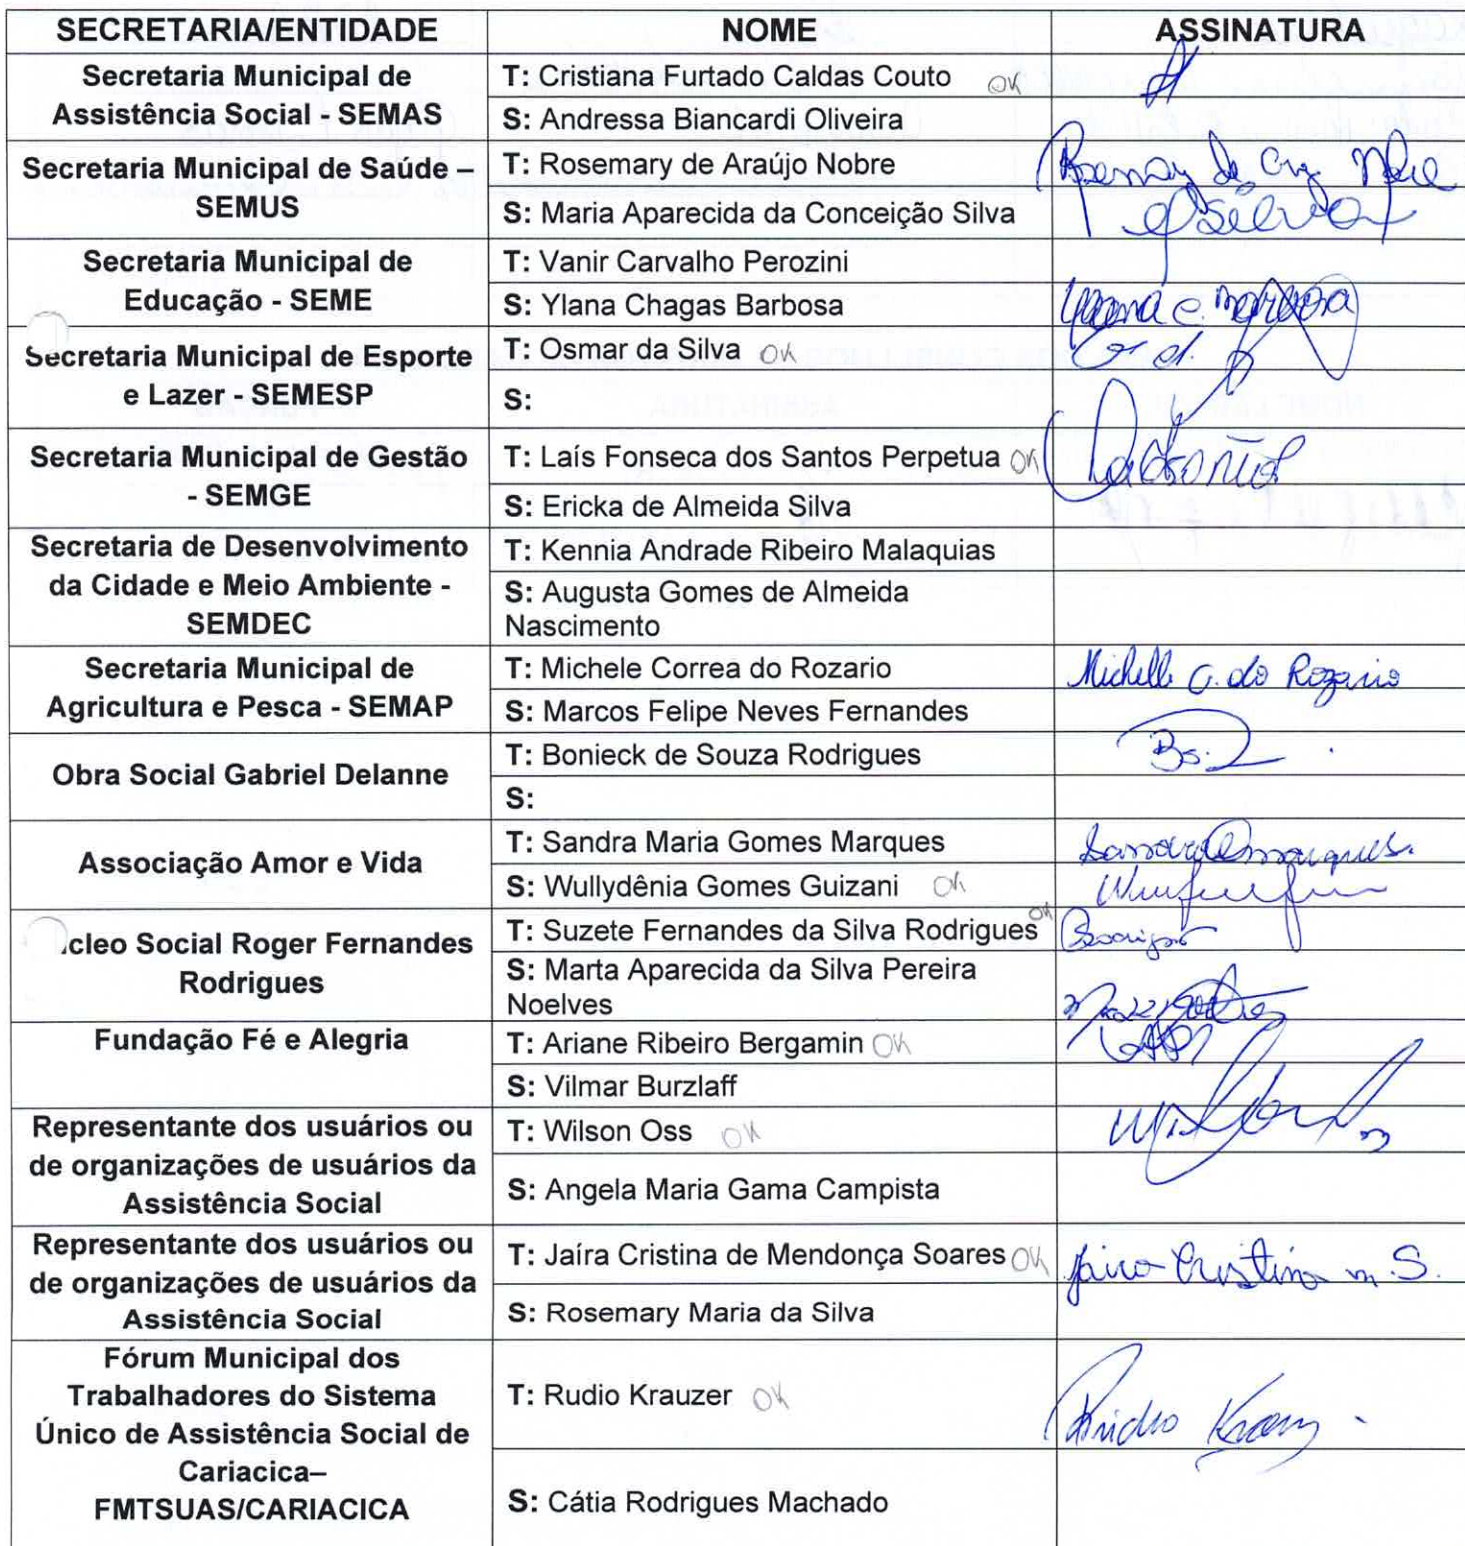 SECRETARIA/ENTIDADE NOME ASSINATURA
Secretaria Municipal de
Assistência Social - SEMAS
T: Cristiana Furtado Caldas Couto OK
S: Andressa Biancardi Oliveira
Secretaria Municipal de Saúde –
SEMUS
T: Rosemary de Araújo Nobre
S: Maria Aparecida da Conceição Silva
Silva
Secretaria Municipal de
Educação - SEME
T: Vanir Carvalho Perozini
S: Ylana Chagas Barbosa
Secretaria Municipal de Esporte
e Lazer - SEMESP
T: Osmar da Silva OK
S:
Secretaria Municipal de Gestão
- SEMGE
T: Laís Fonseca dos Santos Perpetua OK
S: Ericka de Almeida Silva
Secretaria de Desenvolvimento
da Cidade e Meio Ambiente -
SEMDEC
T: Kennia Andrade Ribeiro Malaquias
S: Augusta Gomes de Almeida
Nascimento
Secretaria Municipal de
Agricultura e Pesca - SEMAP
T: Michele Correa do Rozario
Michelle C. do Rozario
S: Marcos Felipe Neves Fernandes
Obra Social Gabriel Delanne
T: Bonieck de Souza Rodrigues
S:
Associação Amor e Vida
T: Sandra Maria Gomes Marques
S: Wullydênia Gomes Guizani OK
cleo Social Roger Fernandes
Rodrigues
T: Suzete Fernandes da Silva Rodrigues OK
S: Marta Aparecida da Silva Pereira
Noelves
Fundação Fé e Alegria
T: Ariane Ribeiro Bergamin OK
S: Vilmar Burzlaff
Representante dos usuários ou
de organizações de usuários da
Assistência Social
T: Wilson Oss OK
S: Angela Maria Gama Campista
Representante dos usuários ou
de organizações de usuários da
Assistência Social
T: Jaíra Cristina de Mendonça Soares OK
Jaira Cristina m. S.
S: Rosemary Maria da Silva
Fórum Municipal dos
Trabalhadores do Sistema
Único de Assistência Social de
Cariacica–
FMTSUAS/CARIACICA
T: Rudio Krauzer OK
S: Cátia Rodrigues Machado